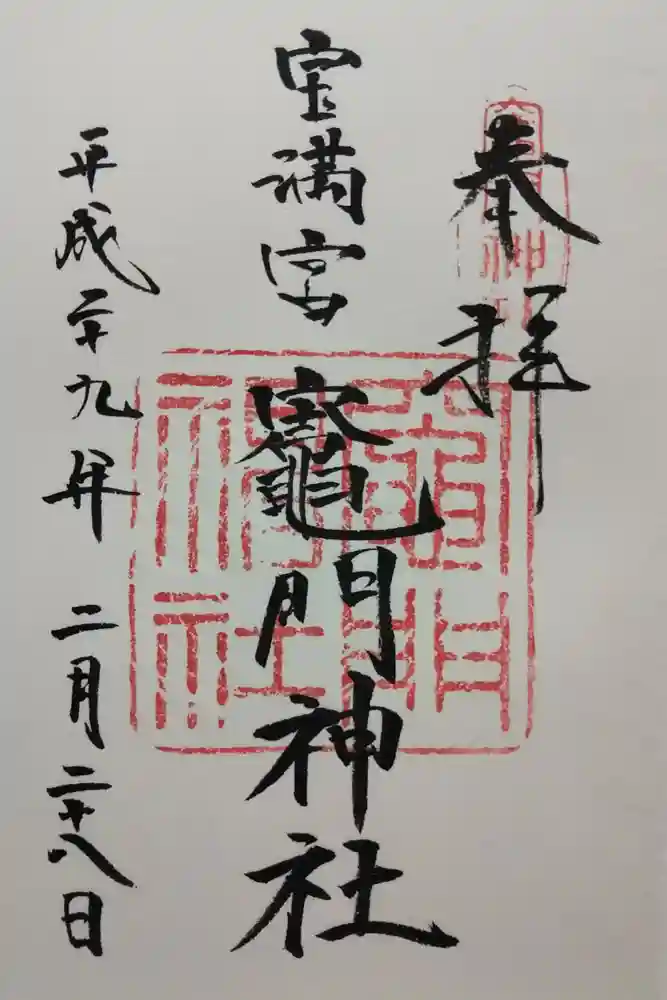 奉拝
宝満宮
竈門神社
平成二十九年 二月二十八日
竈門神社